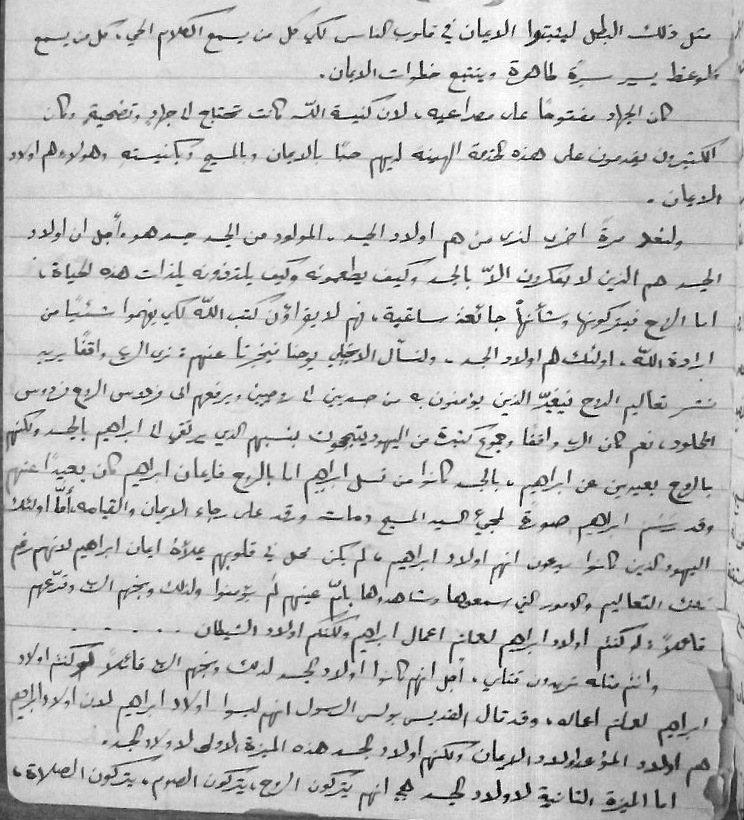 مثل ذلك البطل ليثبتوا الايمان في قلوب الناس لكي كل من يسمع الكلام الحي، كل من يسمع
الوعظ يسير سيرة طاهرة ويتتبع خطوات الايمان.
كان الجهاد مفتوحًا على مصراعيه، لان كنيسة الله كانت تحتاج الى جهادٍ وتضحيةٍ وكان
الكثيرون يقدمون على هذه الخدمة ليهم حبًا بالايمان وبالمسيح وبكنيسته وهولاء هم اولاد
الايمان.
ولنعد مرة اخرى لنرى من هم اولاد الجسد. المولود من الجسد جسد هو، أجل ان اولاد
الجسد هم الذين لا يفكرون الاّ بالجسد وكيف يطعمونه وكيف يلذذونه بلذات هذه الحياة،
اما الروح فيتركونها وشأنها جائعة ساغبة، فهم لا يقرأون كتب الله لكي يفهموا شيئًا من
ارادة الله. اولئك هم اولاد الجسد. ولنسأل الانجيلي يوحنا فيخبرنا عنهم: نرى الرب واقفًا يريد
نشر تعاليم الروح فيغيّر الذين يؤمنون به من جسديين الى روحيين ويرفعهم الى فردوس الروح فردوس
الخلود، نعم كان الرب واقفًا وجموع كثيرة من اليهود يتبجحون بنسبهم الذي يرتقي الى ابراهيم بالجسد ولكنهم
بالروح بعيدين عن ابراهيم، بالجسد كانوا من نسل ابراهيم اما بالروح فايمان ابراهيم كان بعيدًا عنهم
وقد رسم ابراهيم صورة لمجيء السيد المسيح ومات وقد على رجاء الايمان والقيامه، أمّا اولئك
اليهود الذين كانوا يدعون انهم اولاد ابراهيم، لم يكن محل في قلوبهم يملأه ايمان ابراهيم لانهم رغم
تلك التعاليم والامور التي سمعوها وشاهدوها بأمّ عينهم لم يؤمنوا ولذلك وبخهم الرب وقرّعهم
قائلاً: لو كنتم اولاد ابراهيم لعملتم اعمال ابراهيم ولكنكم اولاد الشيطان . . . . . .
وانتم مثله تريدون قتلي. أجل انهم كانوا اولاد الجسد لذلك وبخهم الرب قائلاً لو كنتم اولاد
ابراهيم لعملتم اعماله، وقد قال القديس بولس الرسول انهم ليسوا اولاد ابراهيم لان اولاد ابراهيم
هم اولاد الموعد اولاد الايمان ولكنهم اولاد الجسد هذه الميزة الاولى لاولاد الجسد.
اما الميزة الثانية لاولاد الجسد هي انهم يتركون الروح، يتركون الصوم، يتركون الصلاة،